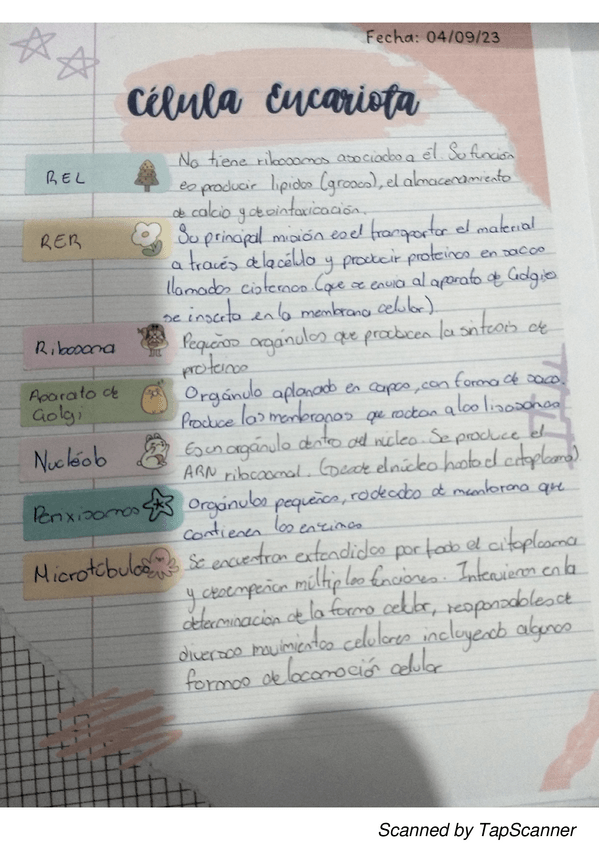 Fecha: 04/09/23
Célula Eucariota
REL
No tiene ribosomas asociados a él. Su función
es producir lípidos (grasas), el almacenamiento
de calcio y desintoxicación.
RER
Su principal misión es el transportar el material
a través de la célula y producir proteínas en sacos
llamados cisternas (que se envia al aparato de Golgi o
se inserta en la membrana celular).
Ribosoma
Pequeños orgánulos que producen la síntesis de
proteínas
Aparato de
Golgi
Orgánulo aplanado en capas, con forma de saco.
Produce las membranas que rodean a los lisosomas
Nucléolo
Es un orgánulo dentro del núcleo. Se produce el
ARN ribosomal. (Desde el núcleo hasta el citoplasma)
Peroxisomas
Orgánulos pequeños, rodeados de membrana que
contienen las enzimas
Microtúbulos
Se encuentran extendidos por todo el citoplasma
y desempeñan múltiples funciones. Intervienen en la
determinación de la forma celular, responsables de
diversos movimientos celulares incluyendo algunas
formas de locomoción celular
Scanned by TapScanner